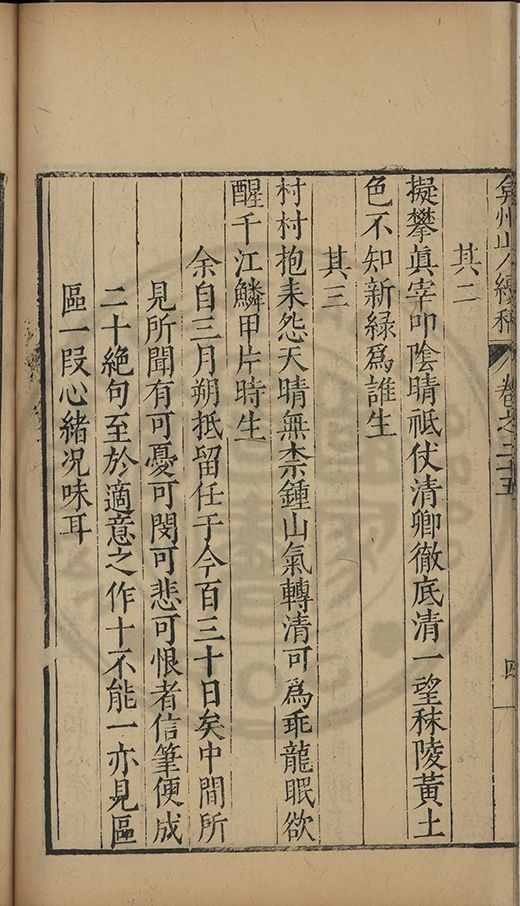 弇州山人續稿 卷之二十五 四
其二
擬攀眞宰叩陰晴祗仗清卿徹底清一望秣陵黃土
色不知新緑爲誰生
其三
村村抱耒怨天晴無柰鍾山氣轉清可爲乖龍眠欲
醒千江鱗甲片時生
余自三月朔抵留任于今百三十日矣中間所
見所聞有可憂可閔可悲可恨者信筆便成
二十絶句至於適意之作十不能一亦見區
區一段心緒况味耳